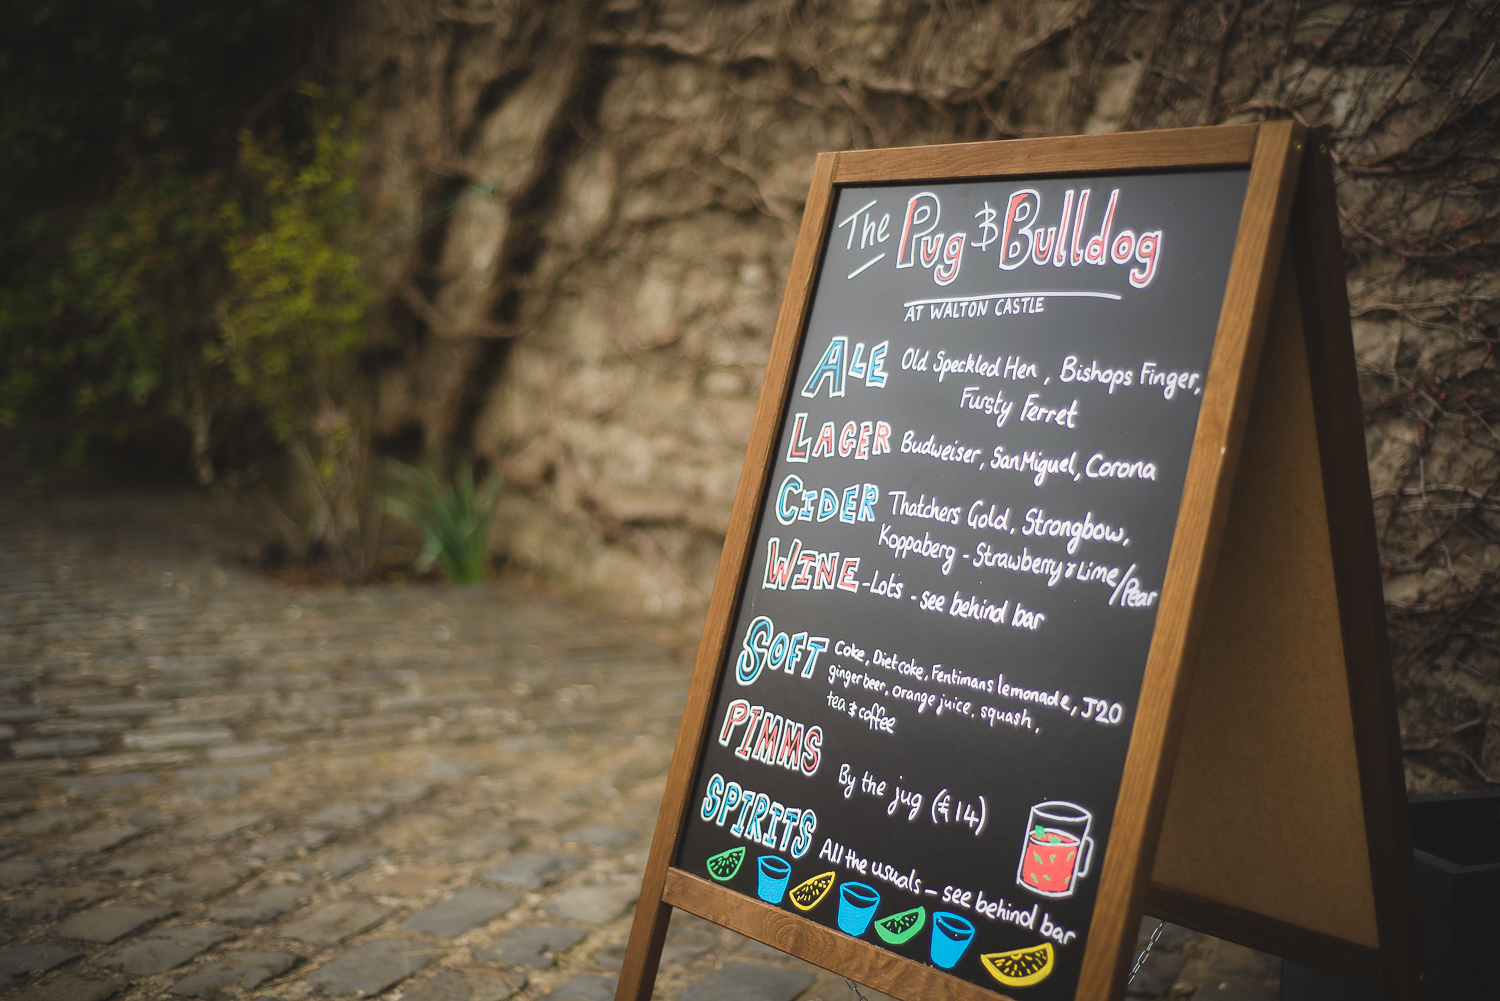 The Pug & Bulldog
AT WALTON CASTLE
ALE Old Speckled Hen, Bishops Finger,
Fursty Ferret
LAGER Budweiser, San Miguel, Corona
CIDER Thatchers Gold, Strongbow,
Koppaberg - Strawberry & Lime/Pear
WINE - Lots - see behind bar
SOFT Coke, Diet coke, Fentimans lemonade, J20
ginger beer, orange juice, squash,
tea & coffee
PIMMS By the jug (£14)
SPIRITS All the usuals - see behind bar